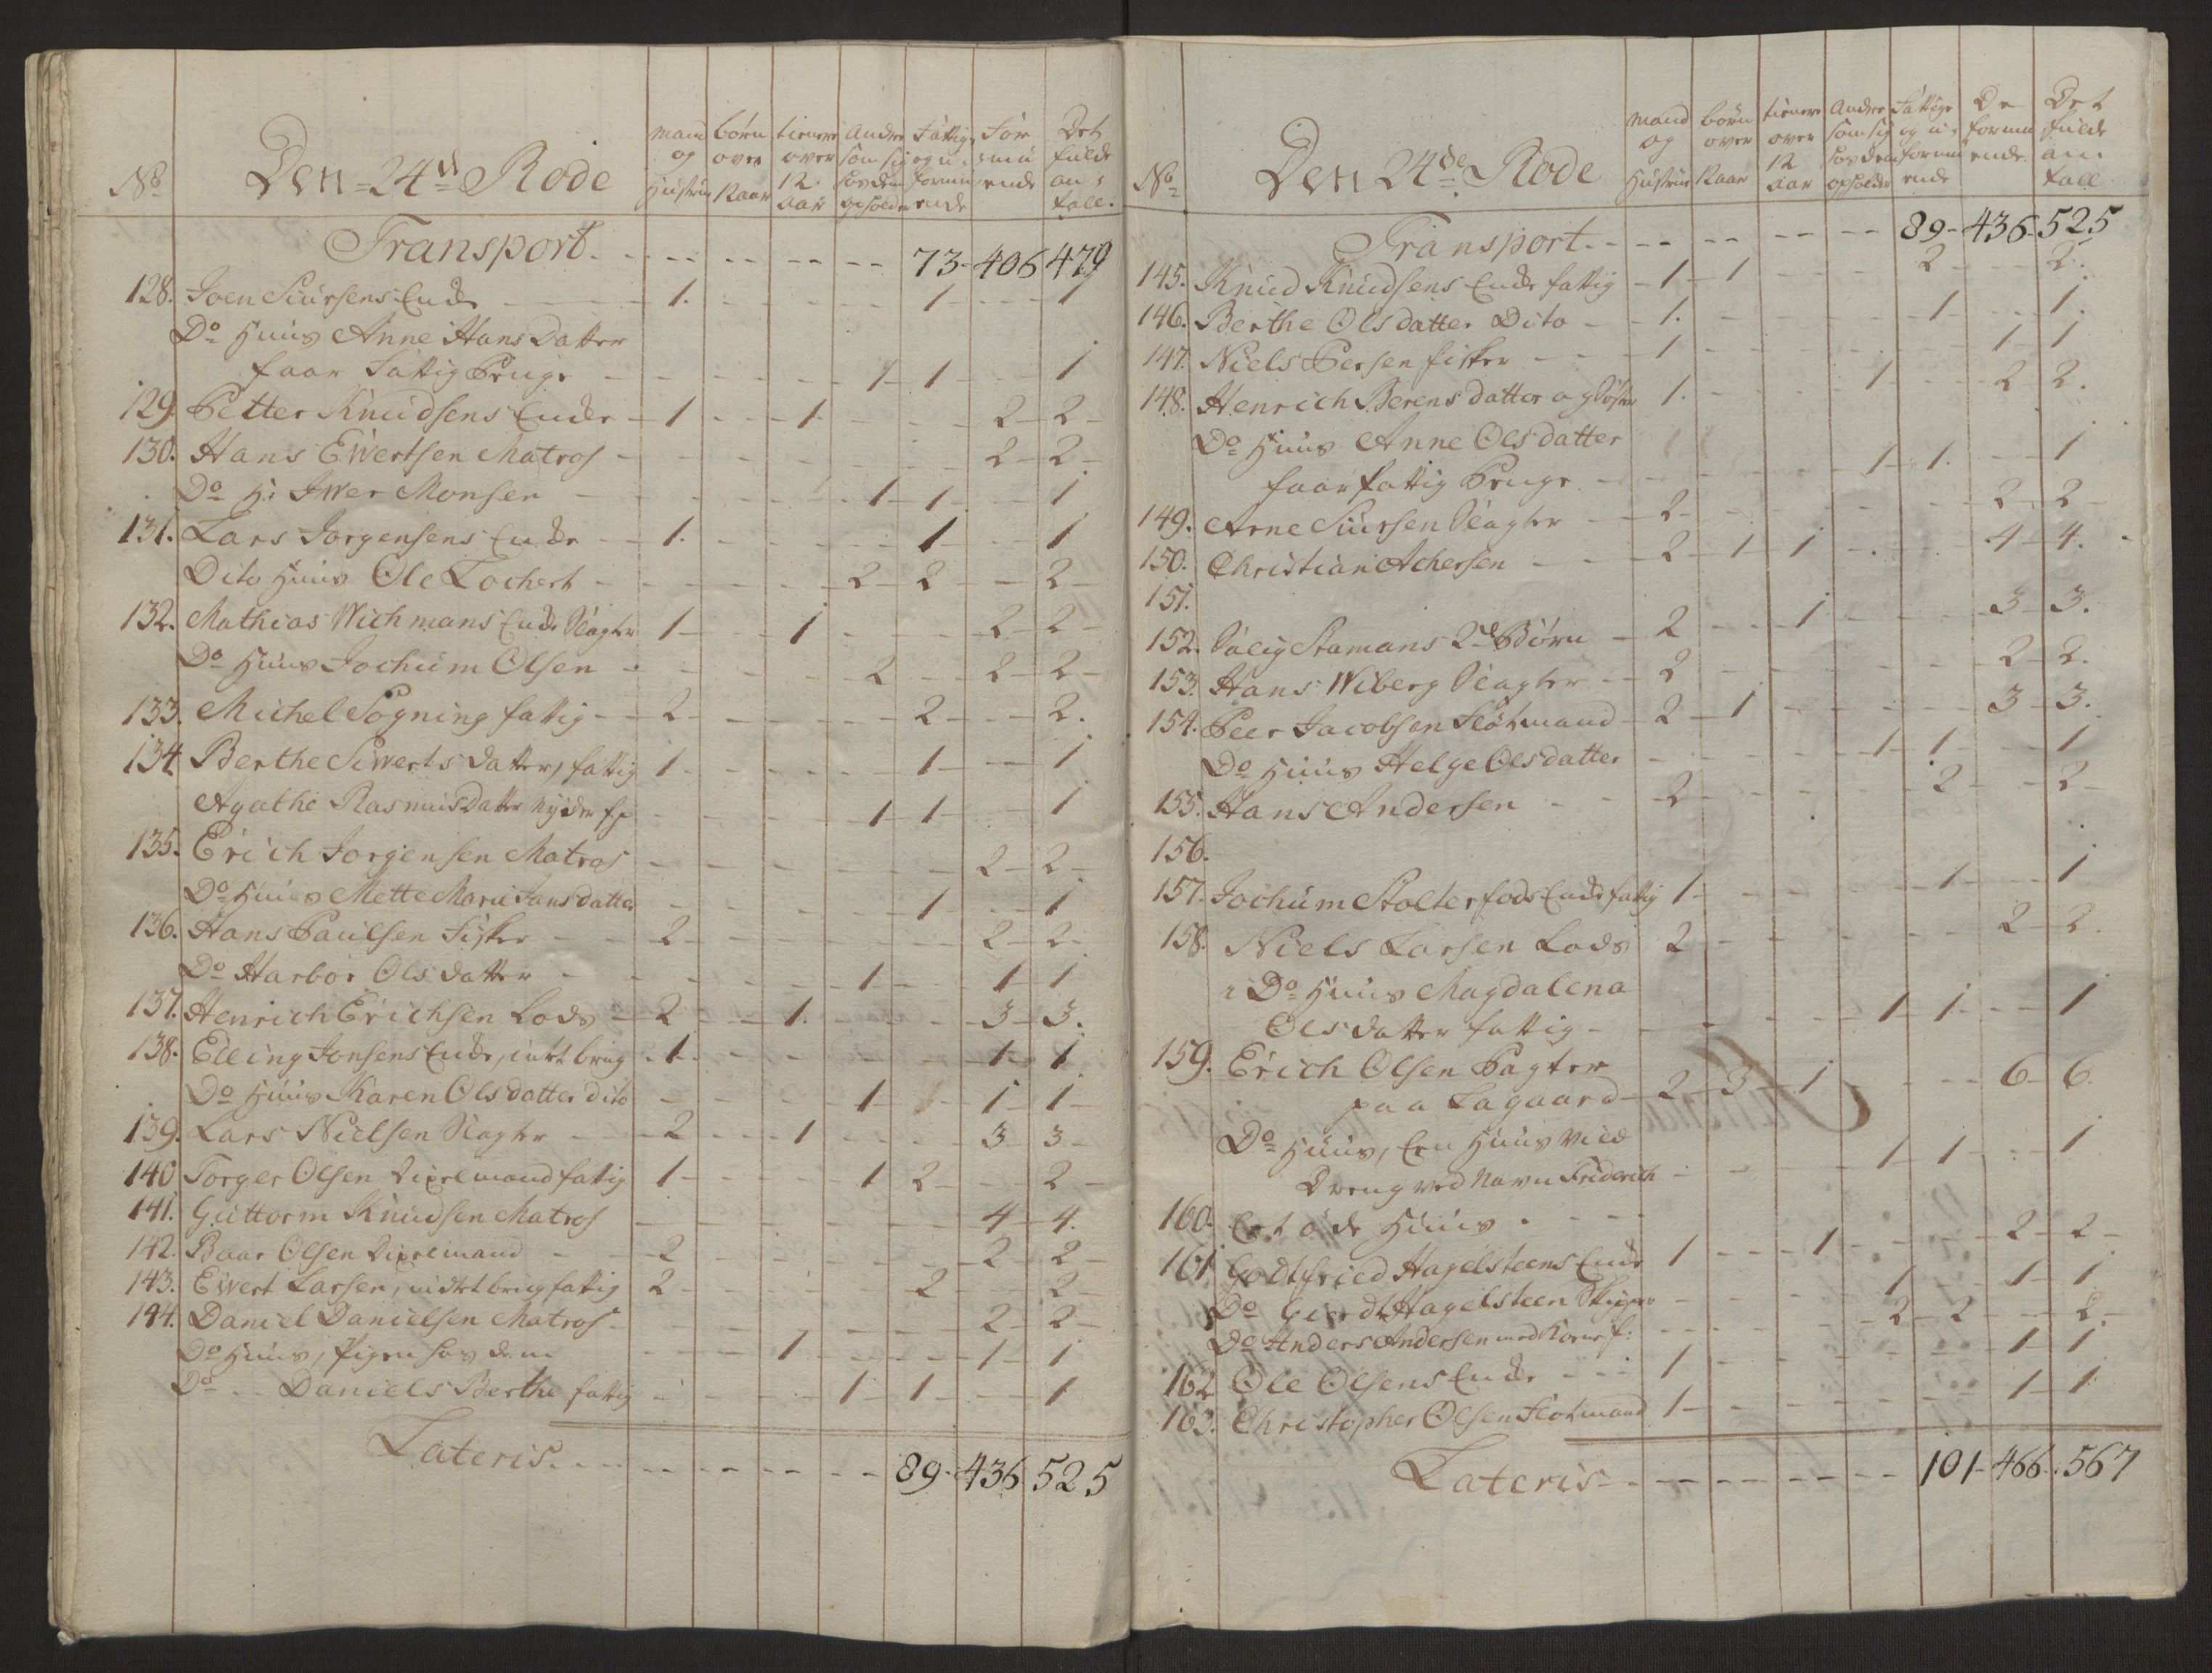 No Den 24de Rode mand og Hustru børn over 12 aar tienere over 12 aar Andre som sig hos dem opholder Fattige og u-formuende For muende Det fulde an tall.
Transport. - - - - - 73 - 406 479
128. Joen Siursens Enke 1. 1 1
Do Huus Anne Hans Datter
faar Fattig Penge 1 1 1
129. Petter Knudsens Enke 1 1 2 2
130. Hans Ewertsen Matros 2 2
Do H: Iwer Monsen 1 1 1
131. Lars Jorgensens Enke 1. 1 1
Dito Huus Ole Lochert 2 2 2
132. Mathias Wichmans Enke Slagter 1 1 2 2
Do Huus Jochum Olsen 2 2 2
133. Michel Sogning fattig 2 2 2.
134 Berthe Siwerts datter, fattig 1 1 1
Agathe Rasmusdatter nyder fp 1 1 1
135. Erich Jorgensen Matros 2 2
Do Huus Mette Marie Jansdatter 1 1
136. Hans Paulsen Fisker 2 2 2
Do Harbor Olsdatter 1 1 1
137. Henrich Erichsen Lods 2 1. 3 3.
138. Elling Jonsens Enke, uært brug 1. 1 1
Do Huus Karen Olsdatter dito 1 1 1
139. Lars Nielsen Slagter 2 1 3 3
140 Torger Olsen Dixelmand fattig 1 1 2 2
141. Guttorm Knudsen Matros 4 4.
142. Baar Olsen Dixelmand 2 2 2
143. Ewert Larsen, fattig 2 2 2
144. Daniel Danielsen Matros 2 2
Do Huus, Pigen hos dem 1 1 1
Do - - Daniels Berthe fattig 1 1 1
Lateris. - - - - - - 89 - 436 525
No Den 24de Rode mand og Hustrue børn over 12 aar tienere over 12 aar Andre som sig hos dem opholder Fattige og u-formuende De formuende. Det fulde an tall
Transport. - - - - - 89 - 436 - 525
145. Knud Knudsens Enke fattig 1 1 2 2.
146. Berthe Olsdatter Dito 1. 1 1.
147. Niels Persen fisker 1 1 1
148. Henrich Berens datter og Søster 1. 1 2 2.
Do Huus Anne Olsdatter
faar fattig Penge 1 1. 1
149. Arne Siursen Slagter 2 2 2
150. Christian Achersen 2 1 1 4 4.
151.
152. Salig Stamans 2de Børn 2 1 3 3.
153. Hans Wiberg Slagter 2 2 2.
154. Peer Jacobsen Flotmand 2 1 3 3.
Do Huus Helge Olsdatter 1 1 1
155. Hans Andersen 2 2 2
156.
157. Jochum Stolterfods Enke fattig 1 1 1
158. Niels Larsen Lods 2 2 2.
i Do Huus Magdalena
Olsdatter fattig 1 1 1
159. Erich Olsen Pagter
paa Lagaard 2 3 1 6 6.
Do Huus, Een Huus med
Dreng ved Navn Friderich 1 1 1
160. Eet øde Huus
161. Godtfried Hagelsteens Enke 1 1 2 2
Do Giert Hagelsteen Skipper 1 1 1
Do Anders Andersen med Kone f: 2 2 2.
162 Ole Olsens Enke 1 1 1
163. Christopher Olsen Flotmand 1 1 1
Lateris - - - - - - 101 - 466. 567